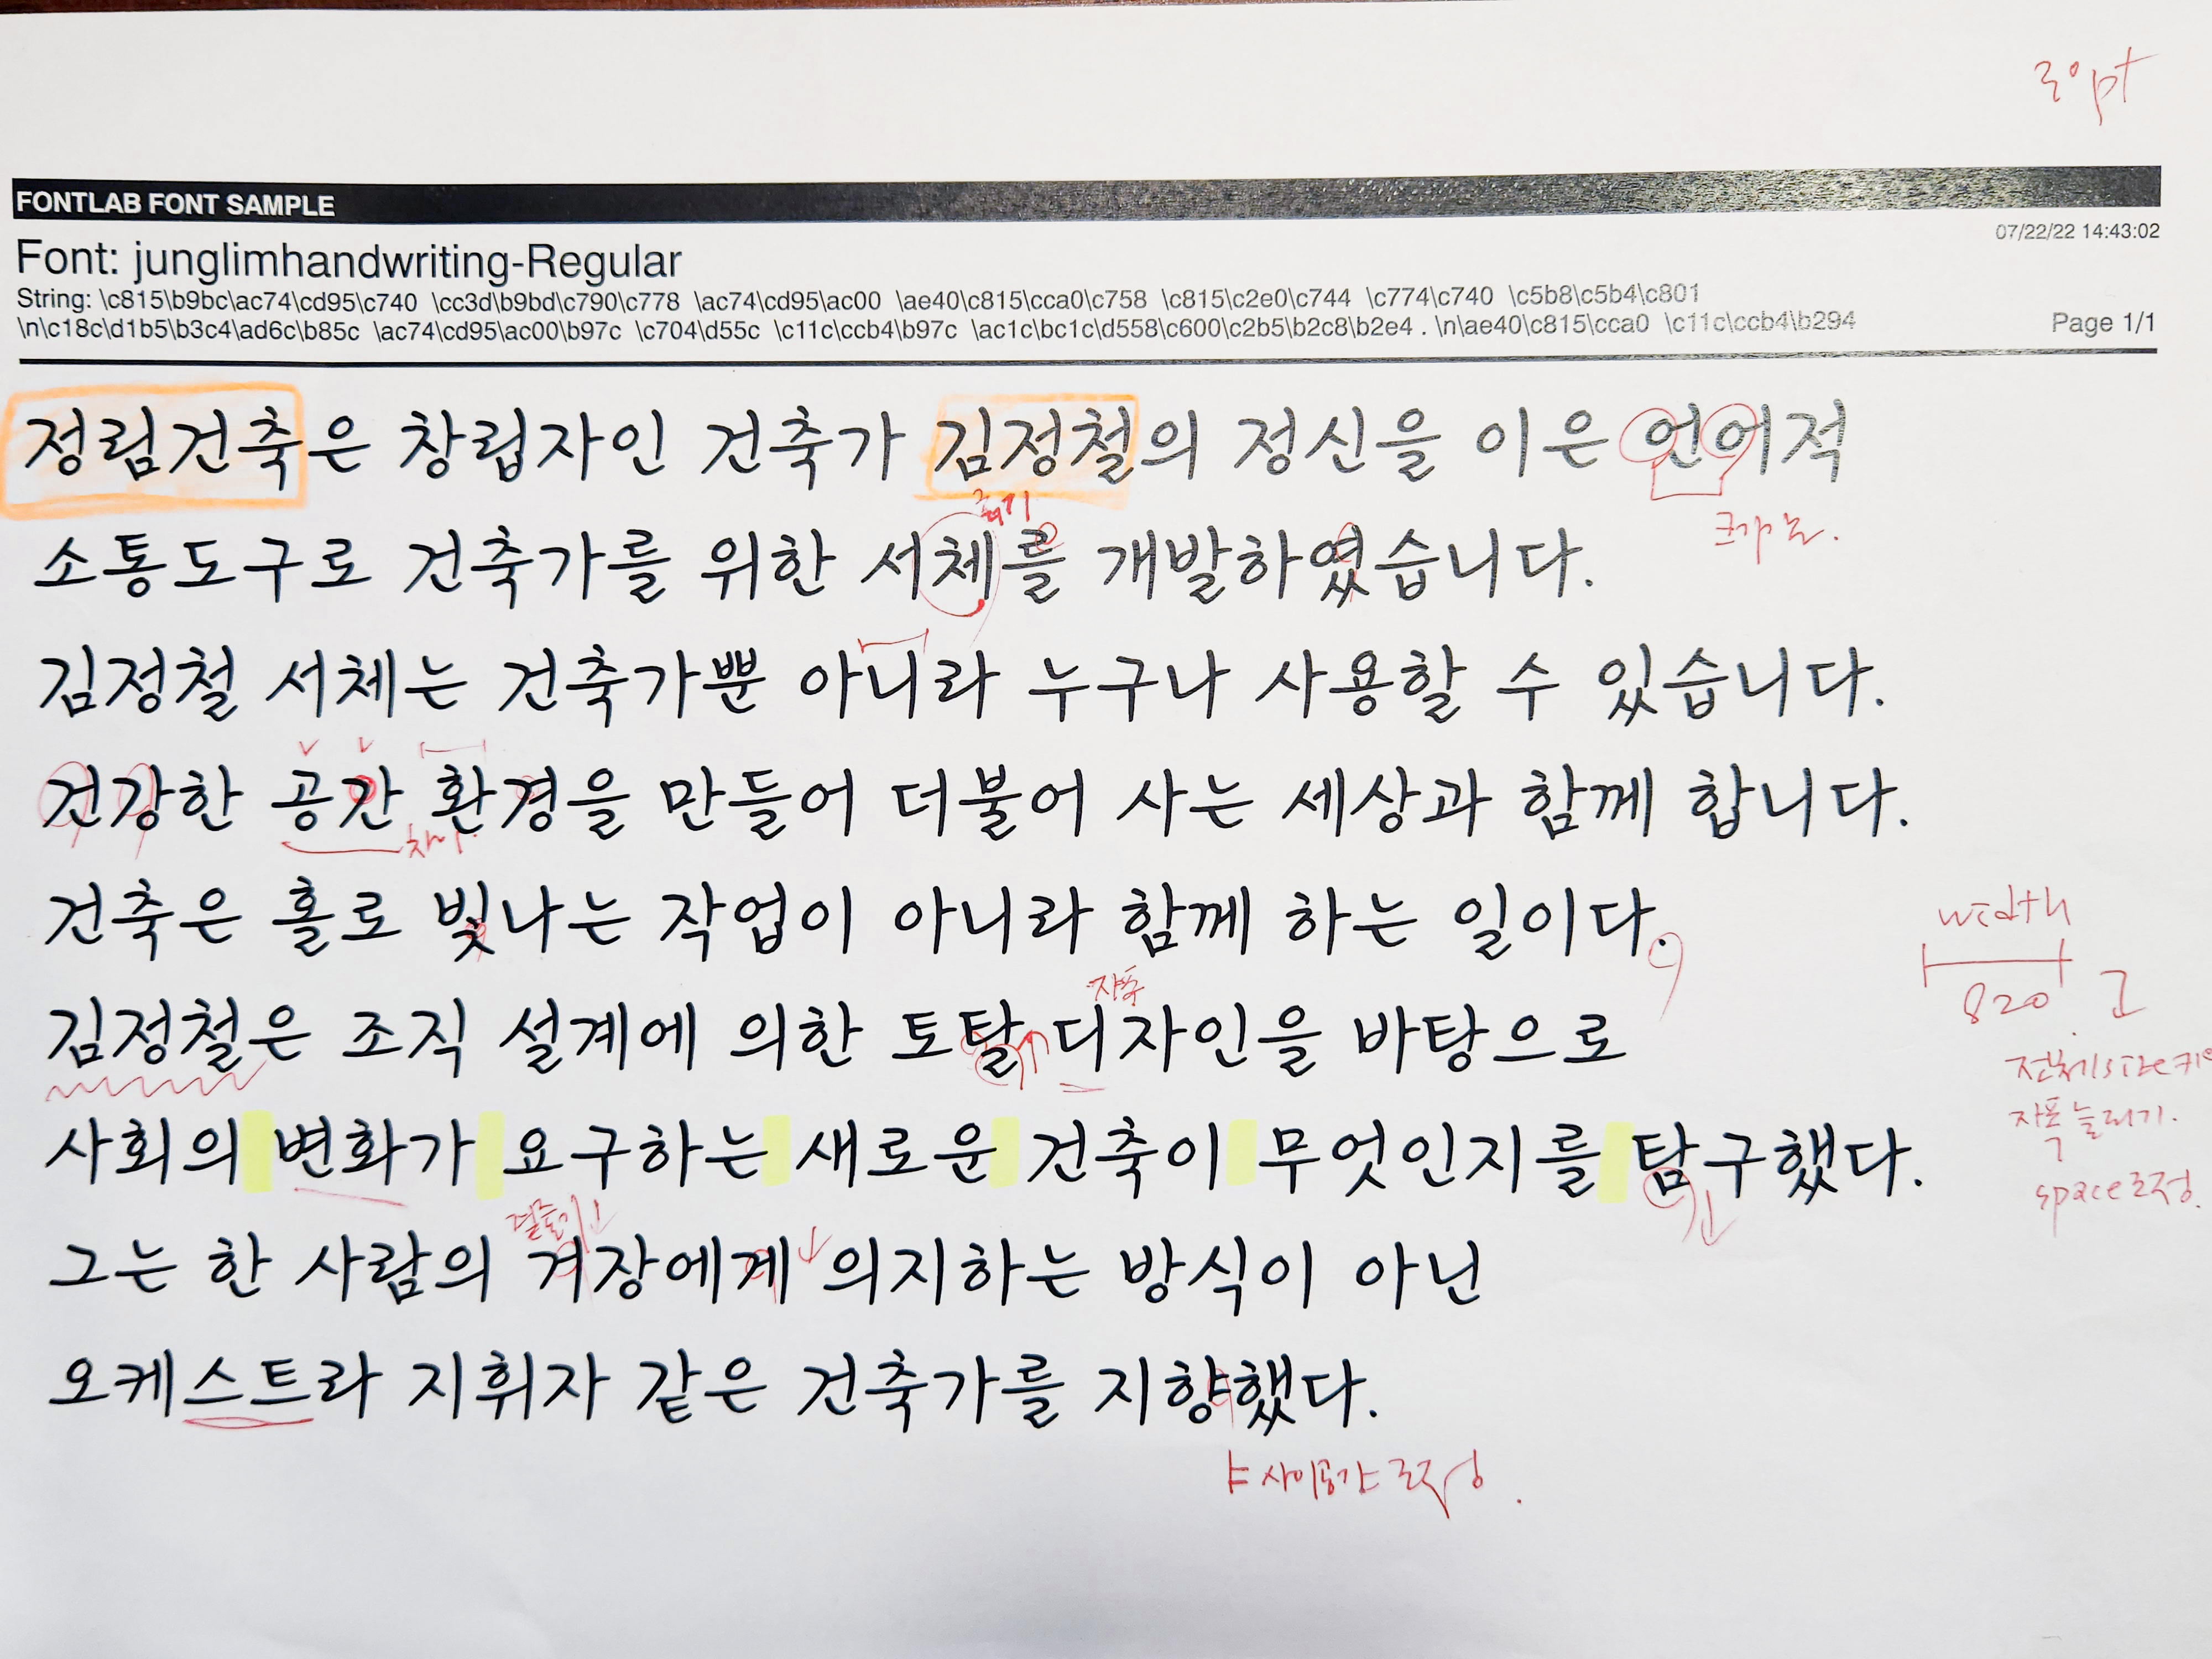 30pt
FONTLAB FONT SAMPLE
07/22/22 14:43:02
Font: junglimhandwriting-Regular
String: \c815\b9bc\ac74\cd95\c740 \cc3d\b9bd\c790\c778 \ac74\cd95\ac00 \ae40\c815\cca0\c758 \c815\c2e0\c744 \c774\c740 \c5b8\c5b4\c801
\n\c18c\d1b5\b3c4\ad6c\b85c \ac74\cd95\ac00\b97c \c704\d55c \c11c\ccb4\b97c \ac1c\bc1c\d558\c600\c2b5\b2c8\b2e4 . \n\ae40\c815\cca0 \c11c\ccb4\b294 Page 1/1
정림건축은 창립자인 건축가 김정철의 정신을 이은 언어적
소통도구로 건축가를 위한 서체를 개발하였습니다.
김정철 서체는 건축가뿐 아니라 누구나 사용할 수 있습니다.
건강한 공간 환경을 만들어 더불어 사는 세상과 함께 합니다.
건축은 홀로 빛나는 작업이 아니라 함께 하는 일이다.
width
820
자폭
김정철은 조직 설계에 의한 토탈 디자인을 바탕으로
자폭 늘리기.
사회의 변화가 요구하는 새로운 건축이 무엇인지를 탐구했다.
space조정.
그는 한 사람의 겨장에게 의지하는 방식이 아닌
오케스트라 지휘자 같은 건축가를 지향했다.
ㅑ 사이공간 조정.